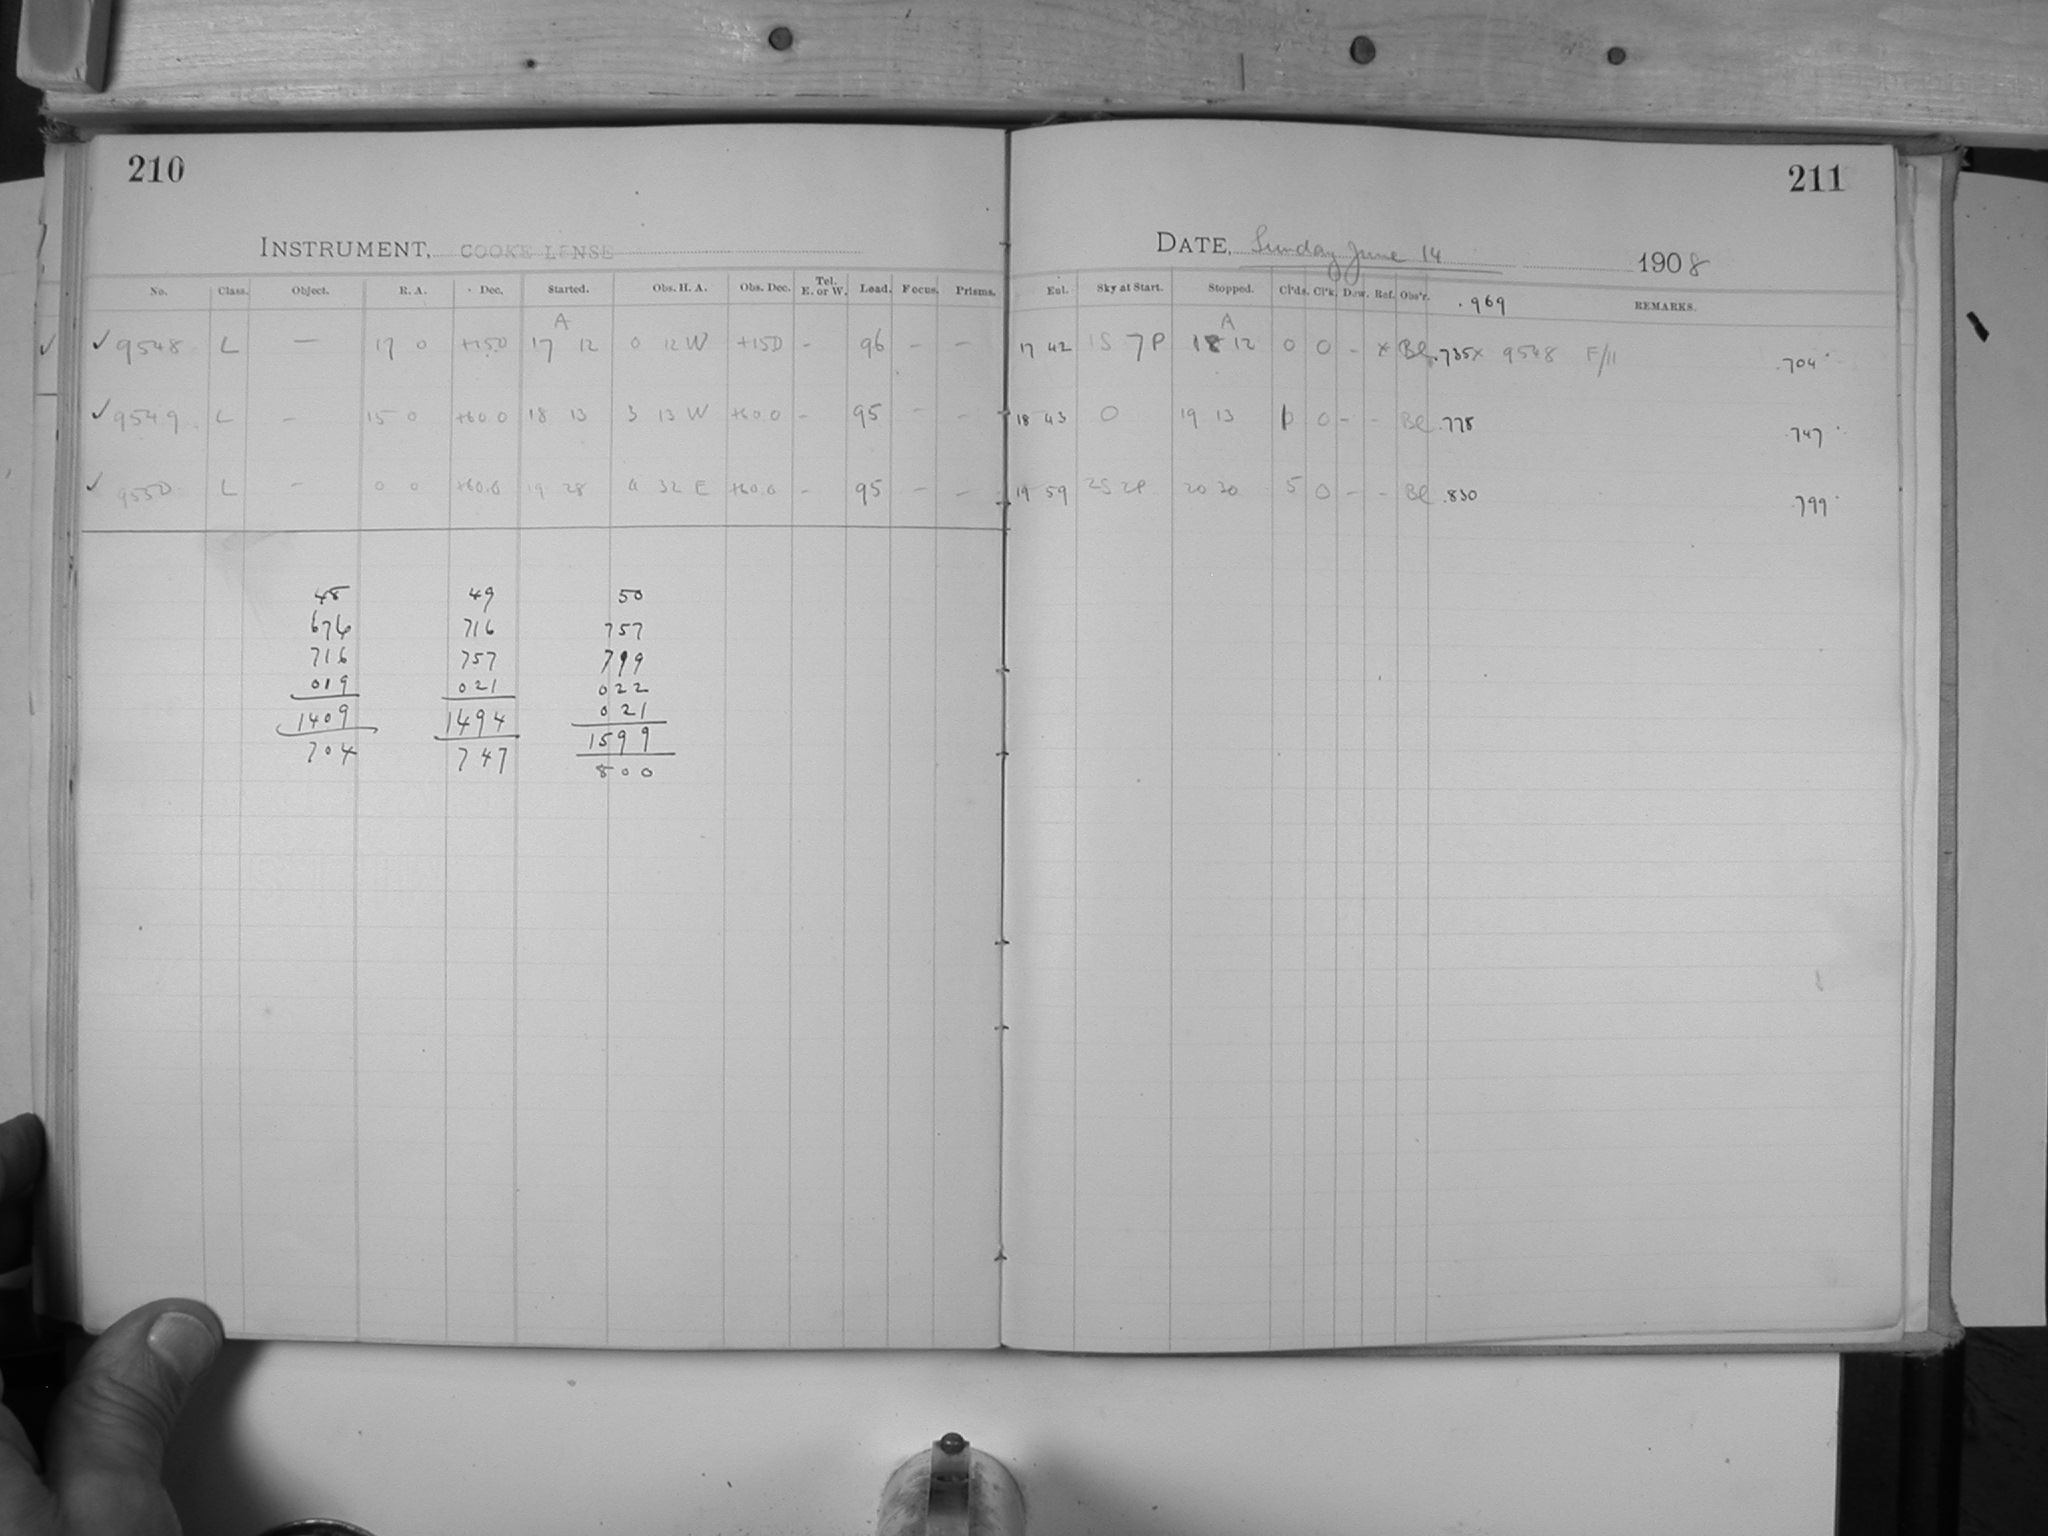 210
INSTRUMENT, COOKE LENSE
No. Class. Object. R. A. Dec. Started. Obs. H. A. Obs. Dec. Tel. E. or W. Lead. Focus. Prisms.
A
✓ 9548 L — 17 0 +15.0 17 12 0 12 W +15.0 - 96 - -
✓ 9549 L - 15 0 +60.0 18 13 3 13 W +60.0 - 95 - -
✓ 9550 L - 0 0 +60.0 19 28 4 32 E +60.0 - 95 - -
48 49 50
676 716 757
716 757 799
019 021 022
021
1409 1494 1599
704 747 800
211
DATE, Sunday June 14 1908
Ent. Sky at Start. Stopped. Cl'ds. Cl'k. Dew. Ref. Obs'r. .969 REMARKS.
A
17 42 1S 7P 18 12 0 0 - x Bl .735 x 9548 F/11 .704
18 43 0 19 13 0 - - Bl .778 .747
19 59 2S 2P 20 30 5 0 - - Bl .830 .799